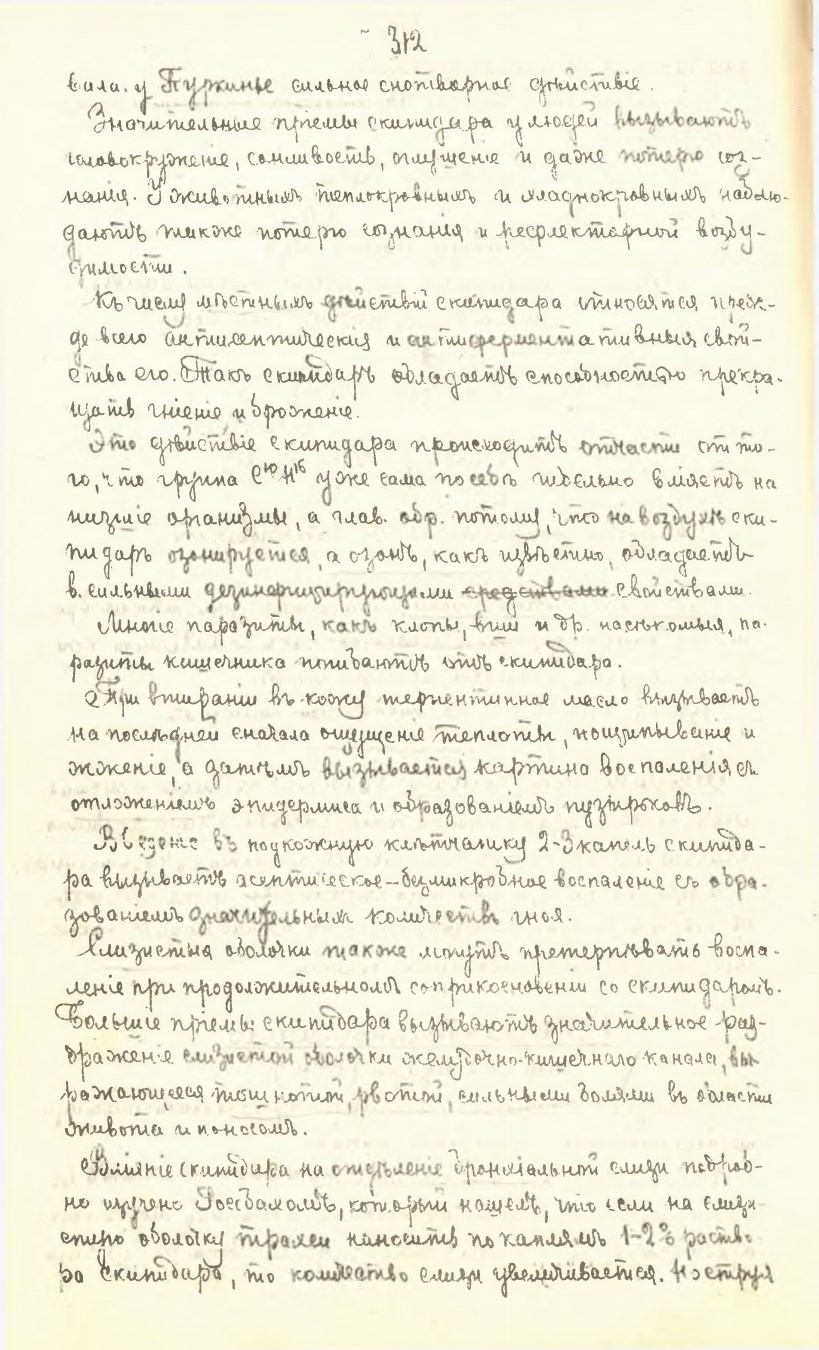 312
вала. у Пуркинье сильное снотворное дѣйствіе.
Значительные пріемы скипидара у людей вызываютъ
головокруженіе, сонливость, оглушеніе и даже потерю соз-
нанія. У животныхъ теплокровныхъ и хладнокровныхъ наблю-
даютъ также потерю сознанія и рефлекторной возбу-
димости.
Къ числу мѣстныхъ дѣйствій скипидара относятся преж-
де всего антисептическія и антиферментативныя свой-
ства его. Такъ скипидаръ обладаетъ способностью прекра-
щать гніеніе и броженіе.
Это дѣйствіе скипидара происходитъ отчасти отто-
го, что група C¹⁰H¹⁶ уже сама по себѣ гибельно вліяетъ на
низшіе организмы, а глав. обр. потому, что на воздухѣ ски-
пидаръ озонируется, а озонъ, какъ извѣстно, обладаетъ
в. сильными дезинфицирующими средствами свойствами.
Многіе паразиты, какъ клопы, вши и др. насѣкомыя, па-
разиты кишечника погибаютъ отъ скипидара.
При втираніи въ кожу терпентинное масло вызываетъ
на послѣдней сначала ощущеніе теплоты, пощипываніе и
жженіе, а затѣмъ вызывается картина воспаленія съ
отложеніемъ эпидермиса и образованіемъ пузырьковъ.
Введеніе въ подкожную клѣтчатку 2-3 капель скипида-
ра вызываетъ асептическое-безмикробное воспаленіе съ обра-
зованіемъ значительныхъ количествъ гноя.
Слизистыя оболочки также могутъ претерпѣвать воспа-
леніе при продолжительномъ соприкосновеніи со скипидаромъ.
Большіе пріемы скипидара вызываютъ значительное раз-
драженіе слизистой оболочки желудочно-кишечнаго канала, вы-
ражающееся тошнотой, рвотой, сильными болями въ области
живота и поносомъ.
Вліяніе скипидара на отдѣленіе бронхіальной слизи подроб-
но изучено Россбахомъ, который нашелъ, что если на слизи-
стую оболочку трахеи наносить по каплямъ 1-2% раство-
ра скипидара, то количество слизи увеличивается. Но струя